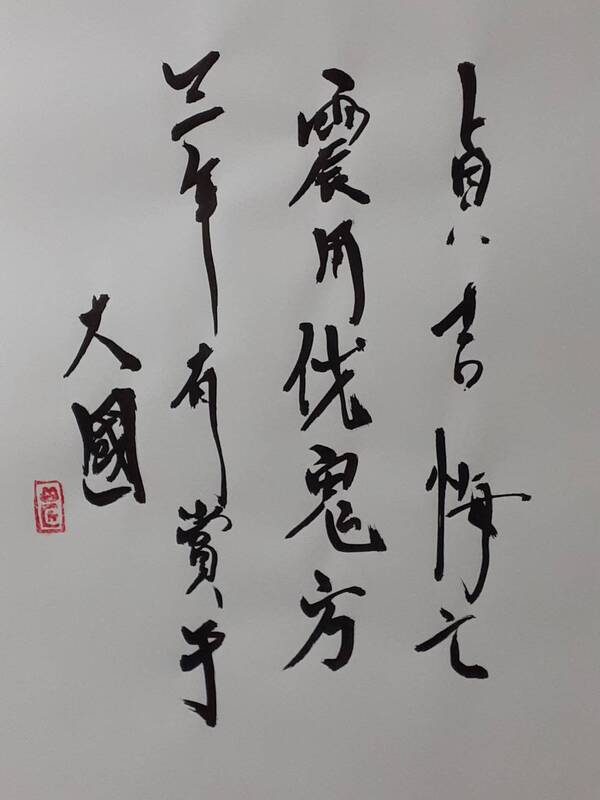 貞吉悔亡
震用伐鬼方
三年有賞于
大國